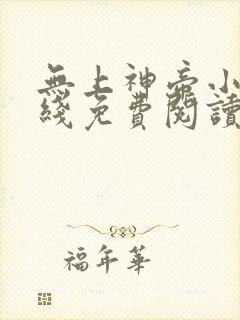 無上神帝小
綫免費閱讀
福年華